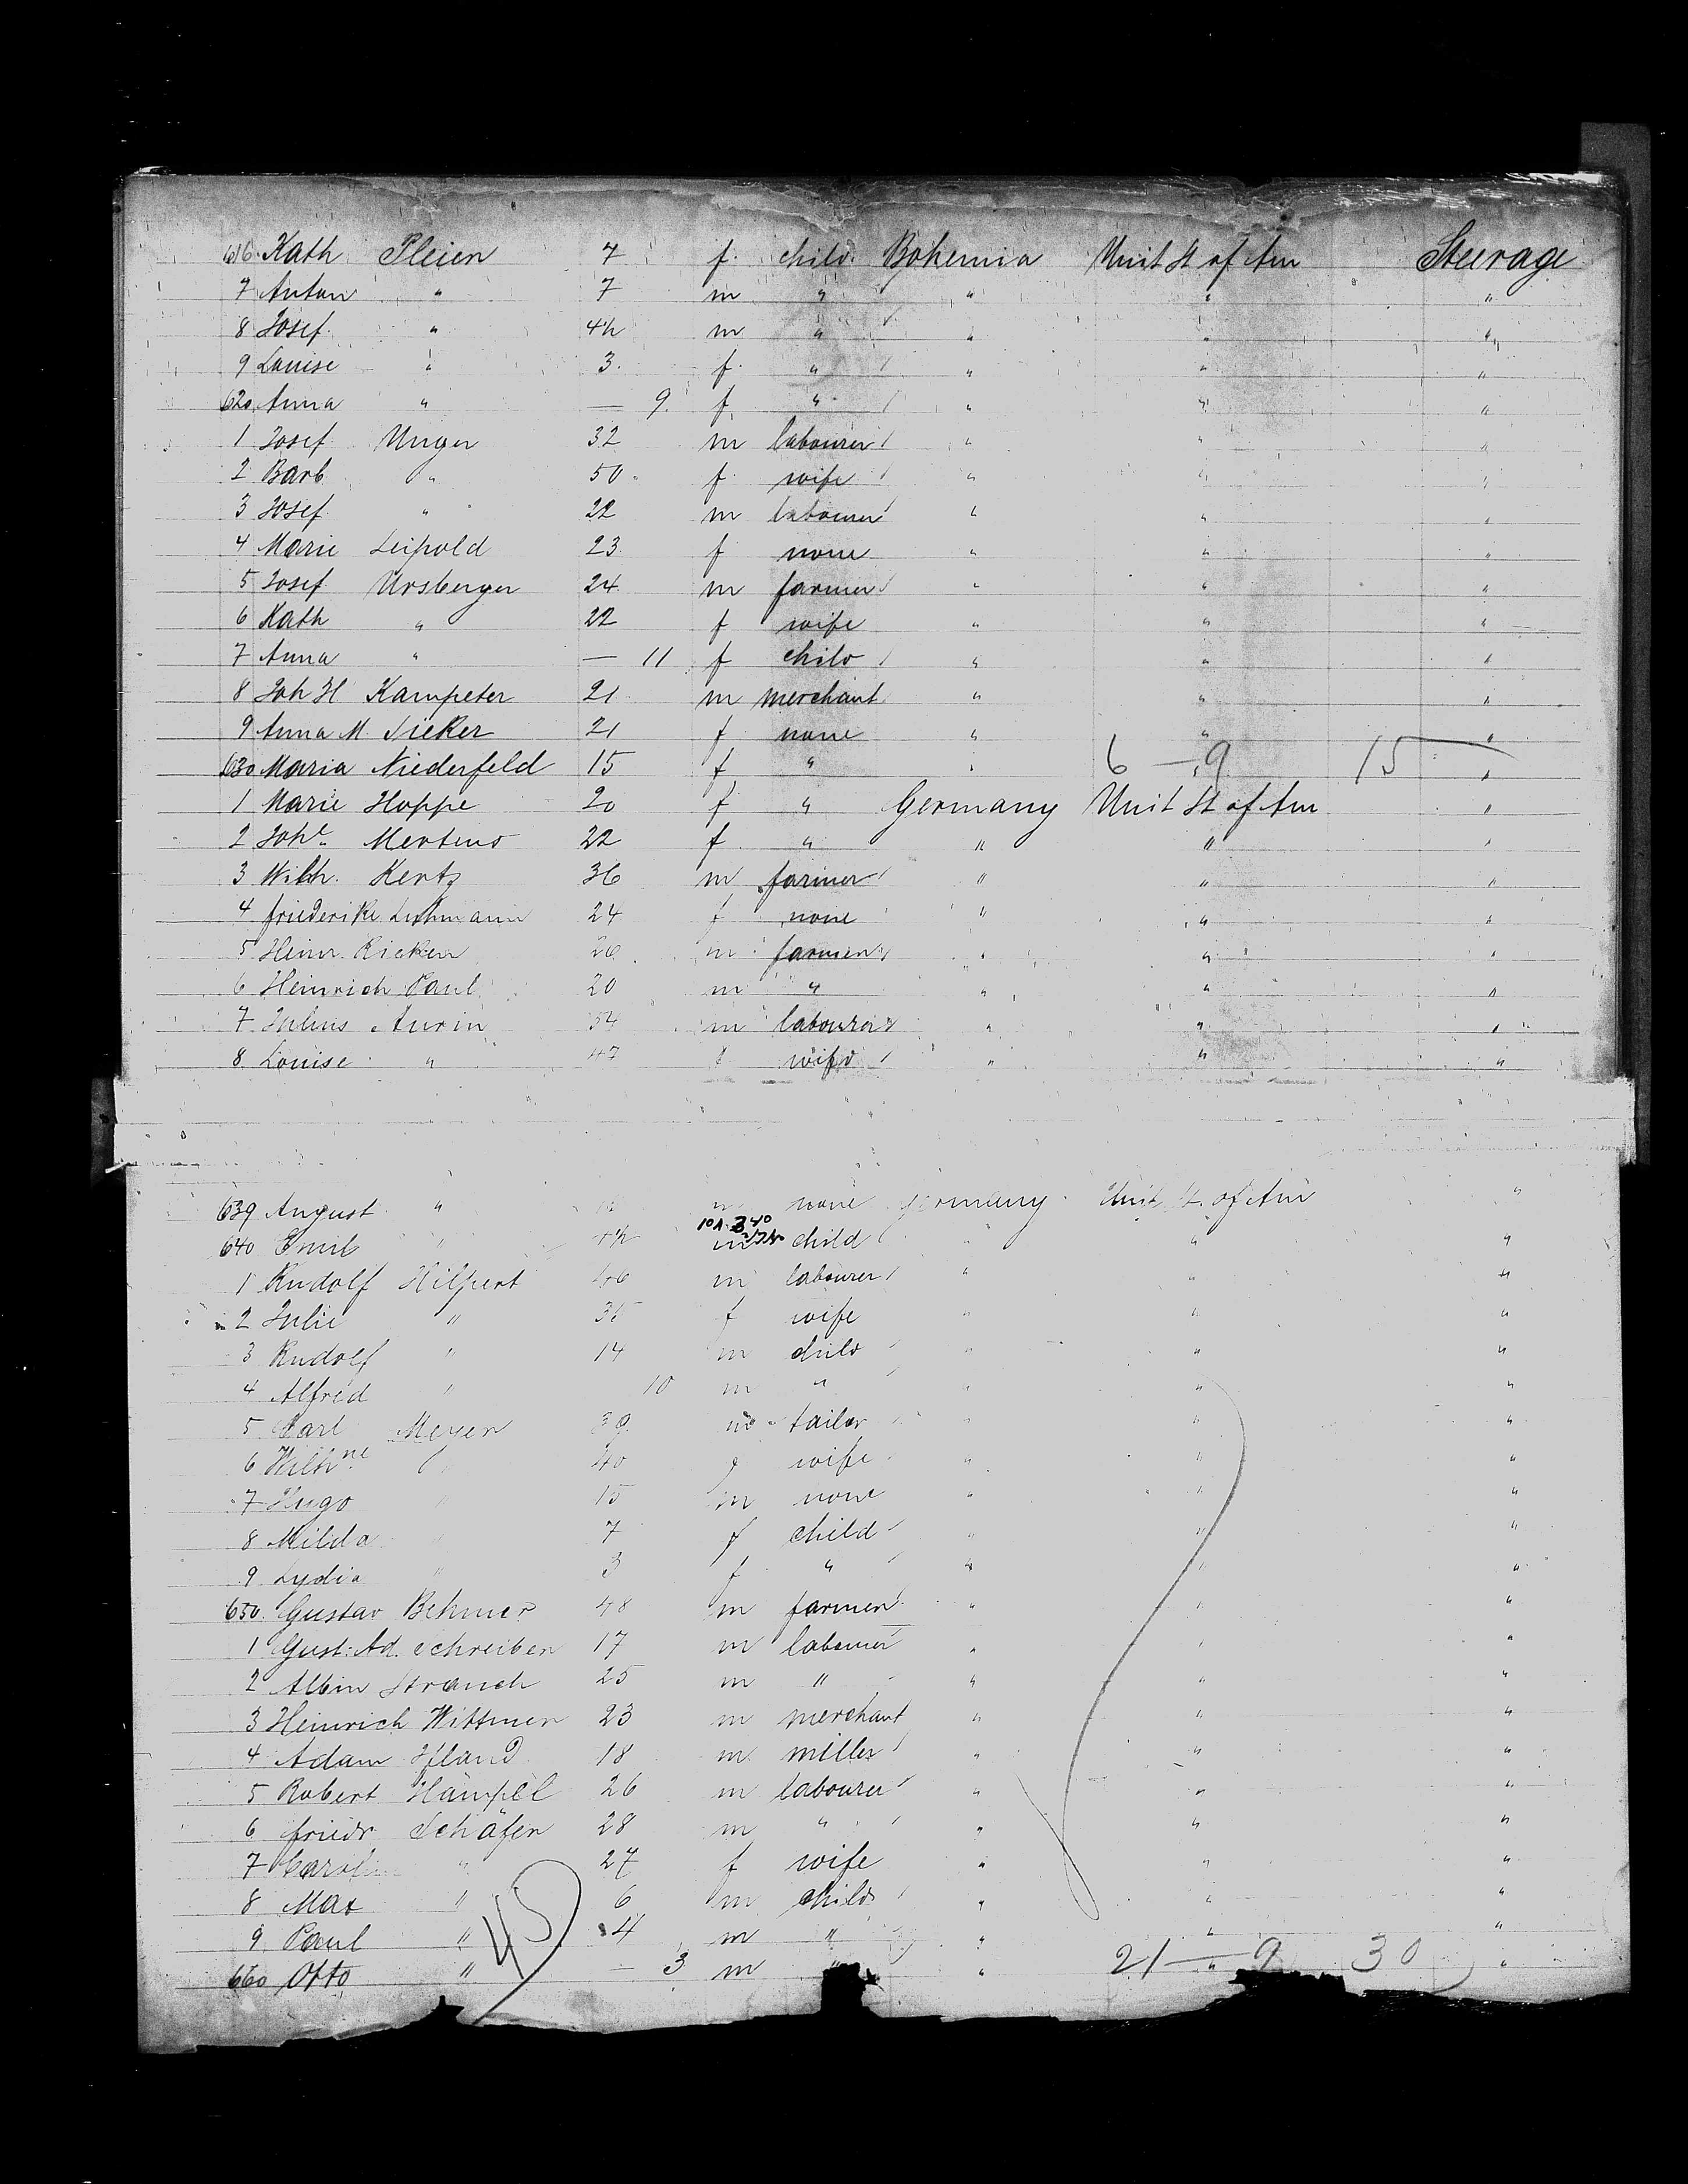 616. Kath Pleien 7 f. child Bohemia Unit St of Am Steerage
7 Anton " 7 m " " " "
8 Josef " 4½ m " " " "
9 Louise " 3. f. " " " "
620. Anna " — 9. f. " " " "
1 Josef Unger 32 m labourer " " "
2 Barb " 50 f wife " " "
3 Josef " 22 m labourer " " "
4 Marie Leipold 23 f none " " "
5 Josef Ursberger 24 m farmer " " "
6 Kath " 22 f wife " " "
7 Anna " — 11 f child " " "
8 Joh H Kampeter 21 m merchant " " "
9 Anna M. Sieker 21 f none " " "
630 Maria Niederfeld 15 f " " 6 — 9 15 "
1 Marie Hoppe 20 f " Germany Unit St of Am "
2 Joh Mertens 22 f " " " "
3 Wilh. Kertz 36 m farmer " " "
4 friederike Luhmann 24 f none " " "
5 Heinr. Ricken 26 m farmer " " "
6 Heinrich Paul 20 m " " " "
7 Julius Aurin 54 m labourer " " "
8 Louise " 47 f wife " " "
639 August " m none Germany Unit St. of Am "
640 Emil " m child " " "
1 Rudolf Hilpert 46 m labourer " " "
2 Julie " 35 f wife " " "
3 Rudolf " 14 m child " " "
4 Alfred " 10 m " " " "
5 Carl Meyer 39 m tailor " " "
6 Wilhne " 40 f wife " " "
7 Hugo " 15 m none " " "
8 Milda " 7 f child " " "
9 Lydia " 3 f " " " "
650. Gustav Behmer 48 m farmer " " "
1 Gust. Ad. Schreiber 17 m labourer " " "
2 Albin Strauch 25 m " " " "
3 Heinrich Wittmer 23 m merchant " " "
4 Adam Ifland 18 m. miller " " "
5 Robert Hampel 26 m labourer " " "
6 friedr Schäfer 28 m " " " "
7 " 27 f wife " " "
8 Max " 6 m child " " "
9 Paul " 4 m " " " "
660 Otto " — 3 m " " 21 — 9 30 "